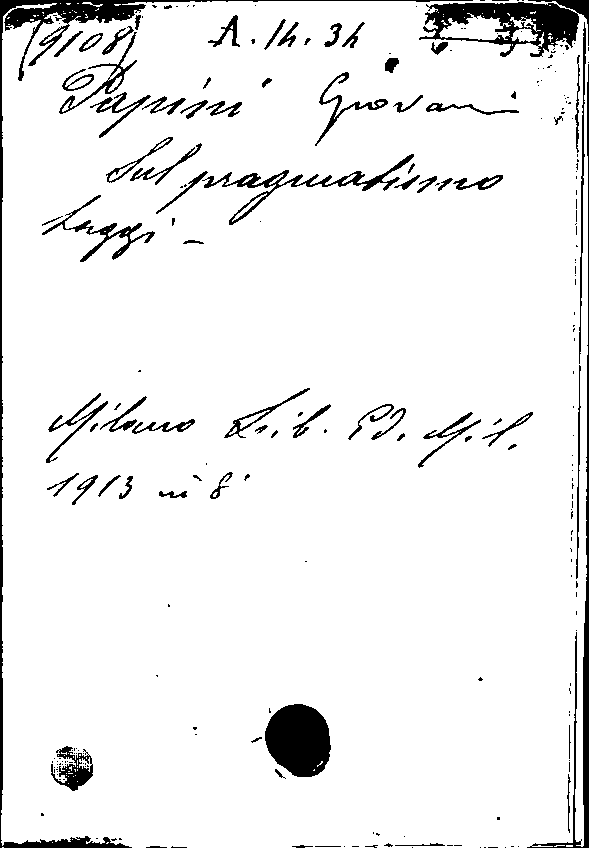 (9108) A.14.34
Papini Giovanni
Sul pragmatismo
Saggi -
Milano Lib. Ed. Mil.
1913 in 8°